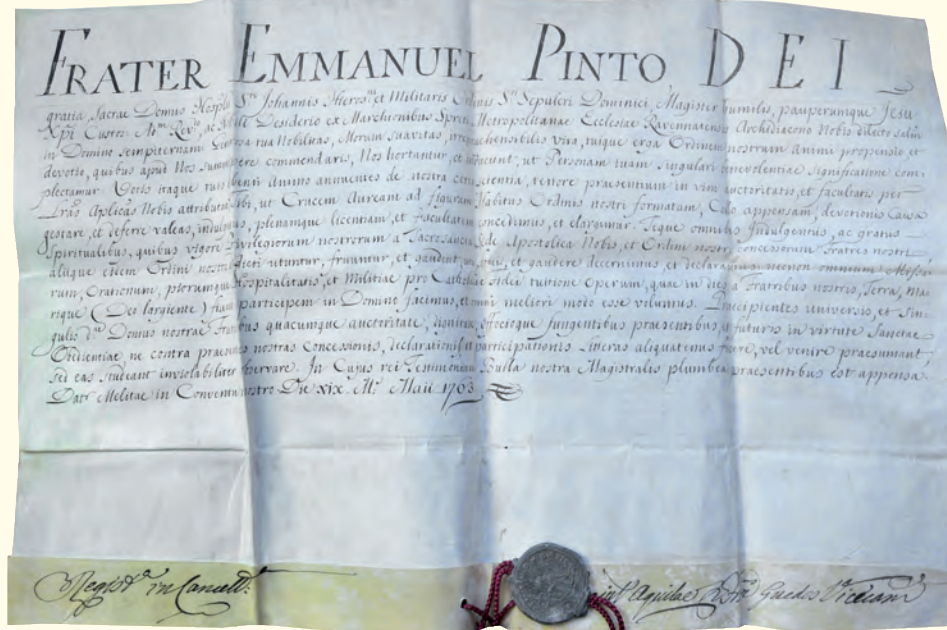 FRATER EMMANUEL PINTO DEI
gratia, Sacrae Domus Hosplis Sti Johannis Hierosni et Militaris Ordinis Sti Sepulcri Dominici, Magister humilis, pauperumque Jesu
Xpi Custos: Desiderio ex Marchionibus Spreti Metropolitanae Ecclesiae Ravennatensis Archidiacono Nobis dilecto salm
in Domino sempiternam tua Nobilitas, Morum suavitas, viva, tuique erga Ordinem nostrum animi propensio et
devotio, quibus apud Nos commendaris, Nos hortantur, et ut Personam tuam singulari benevolentiae significatione com:
plectamur. Votis itaque tuis animo annuentes de nostra certa scientia, tenore praesentium in vim auctoritatis, et facultatis per
Lras Aplicas Nobis attributae tibi, ut Crucem Auream ad figuram Habitus Ordinis nostri formatam, Collo appensam, devotionis causa
gestare, et deferre valeas, plenamque licentiam, et facultatem concedimus, et elargimur. Teque omnibus Indulgentiis, ac gratiis
Spiritualibus, quibus vigore Privilegiorum nostrorum a Sacrosancta Sede Apostolica Nobis, et Ordini nostro concessorum Fratres nostri,
aliique eidem Ordini nostro utuntur, fruuntur, et gaudent, et gaudere decernimus, et declaramus; necnon omnium Missa
rum, Orationum, piorumque Hospitalitatis, et Militiae pro Catholicae Fidei tuitione operum, quae in dies a Fratribus nostris, Terra, Ma
rique (Deo largiente) fiunt participem in Domino facimus, et meliori modo esse volumus. Praecipientes universis, et sin:
gulis dae Domus nostrae Fratribus quacumque auctoritate, dignitate, officioque fungentibus praesentibus, et futuris in virtute Sanctae
Obedientiae ne contra praesentes nostras concessionis, declarationis, et participationis Literas aliquatenus facere, vel venire praesumant,
sed eas studeant inviolabiliter observare. In Cujus rei Testimonium Bulla nostra Magistralis plumbea praesentibus est appensa.
Datt Melitae in Conventu nostro Die XIX Ms Maii 1763
Registta in Cancellta
Aquilae Guedes